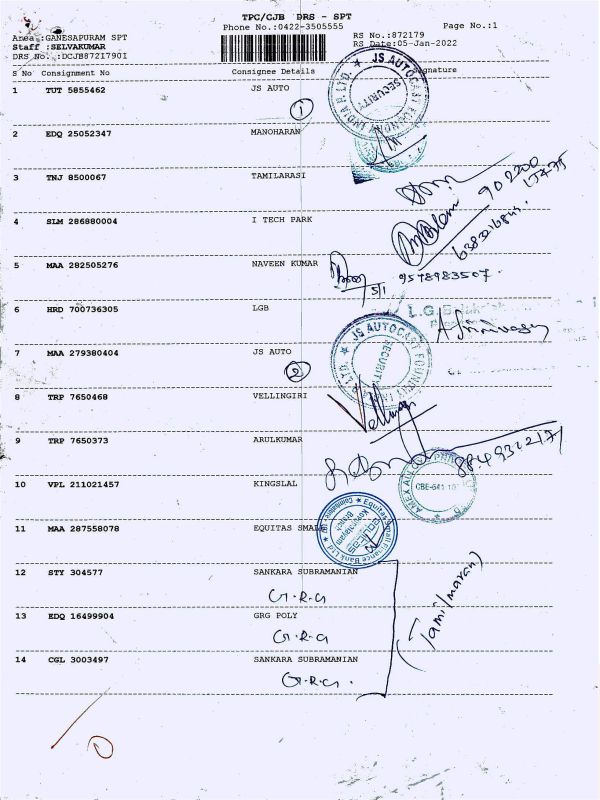 TPC/CJB DRS - SPT
Phone No.:0422-3505555
Page No.:1
Area :GANESAPURAM SPT
Staff :SELVAKUMAR
DRS No. :DCJB8721790I
RS No.:872179
RS Date:05-Jan-2022
S No Consignment No Consignee Details Signature
1 TUT 5855462 JS AUTO
1
2 EDQ 25052347 MANOHARAN
3 TNJ 8500067 TAMILARASI
4 SLM 286880004 I TECH PARK
5 MAA 282505276 NAVEEN KUMAR
5/1 9578983507.
6 HRD 700736305 LGB
7 MAA 279380404 JS AUTO
2
8 TRP 7650468 VELLINGIRI
9 TRP 7650373 ARULKUMAR
10 VPL 211021457 KINGSLAL
11 MAA 287558078 EQUITAS SMAL
12 STY 304577 SANKARA SUBRAMANIAN
G.R.G
13 EDQ 16499904 GRG POLY
G.R.G
14 CGL 3003497 SANKARA SUBRAMANIAN
G.R.G.
(Tamilmaran)
JS AUTOCAST FOUNDRY INDIA P. LTD.
SECURITY
JS AUTOCAST FOUNDRY
SECURITY
Equitas Small Finance Bank Ltd